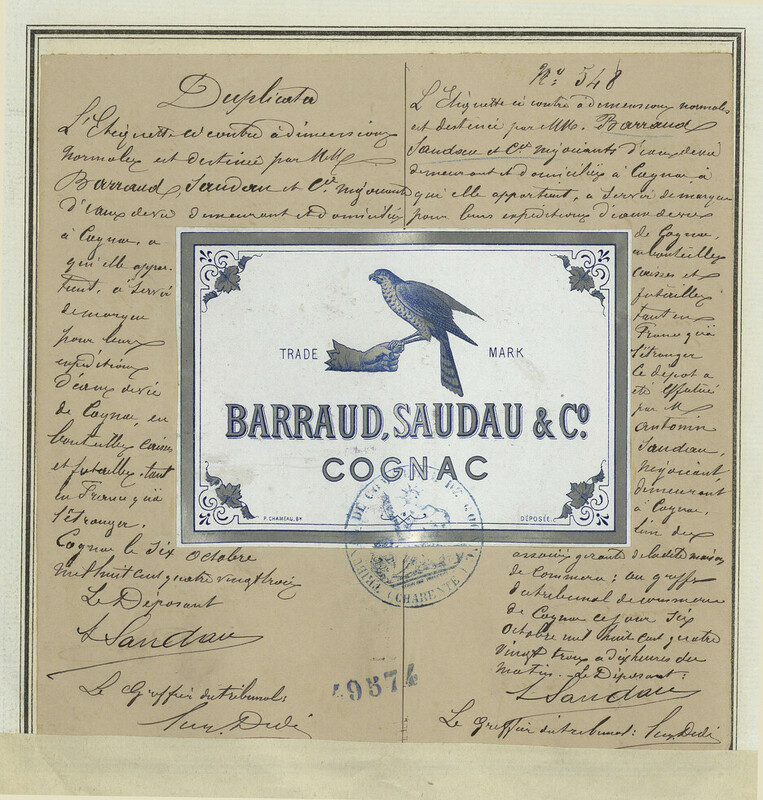 Duplicata
L'Etiquette ci contre à dimensions
normales est destinée par MM
Barraud, Saudau et Cie négociants
d'eaux de vie demeurant et domiciliés
à Cognac, a
qu'elle appar-
tient, a servir
de marque
pour leurs
expéditions
d'eaux de vie
de Cognac, en
bouteilles, caisses
et futailles, tant
en France qu'à
l'étranger.
Cognac le six octobre
mil huit cent quatre vingt trois
Le Déposant
A Saudau
Le Greffier du tribunal:
No 548
L'Etiquette ci contre à dimensions normales
est destinée par MM. Barraud
Saudau et Cie négociants d'eaux de vie
demeurant et domiciliés à Cognac, à
qu'elle appartient, à servir de marque
pour leurs expéditions d'eaux de vie
de Cognac,
en bouteilles
caisses et
futailles
tant en
France qu'à
l'étranger
le dépot a
été effectué
par M
Antonin
Saudau,
négociant,
demeurant
à Cognac,
l'un des
associés gérants de ladite maison
de commerce; au greffe
du tribunal de commerce
de Cognac ce jour six
octobre mil huit cent quatre
vingt trois à dix heures du
matin. Le Déposant:
A Saudau
Le Greffier du tribunal:
TRADE MARK
BARRAUD, SAUDAU & Co.
COGNAC
P. CHAMEAU, BX
DÉPOSÉE.
TRIBUNAL DE COMMERCE DE COGNAC (CHARENTE)
49574